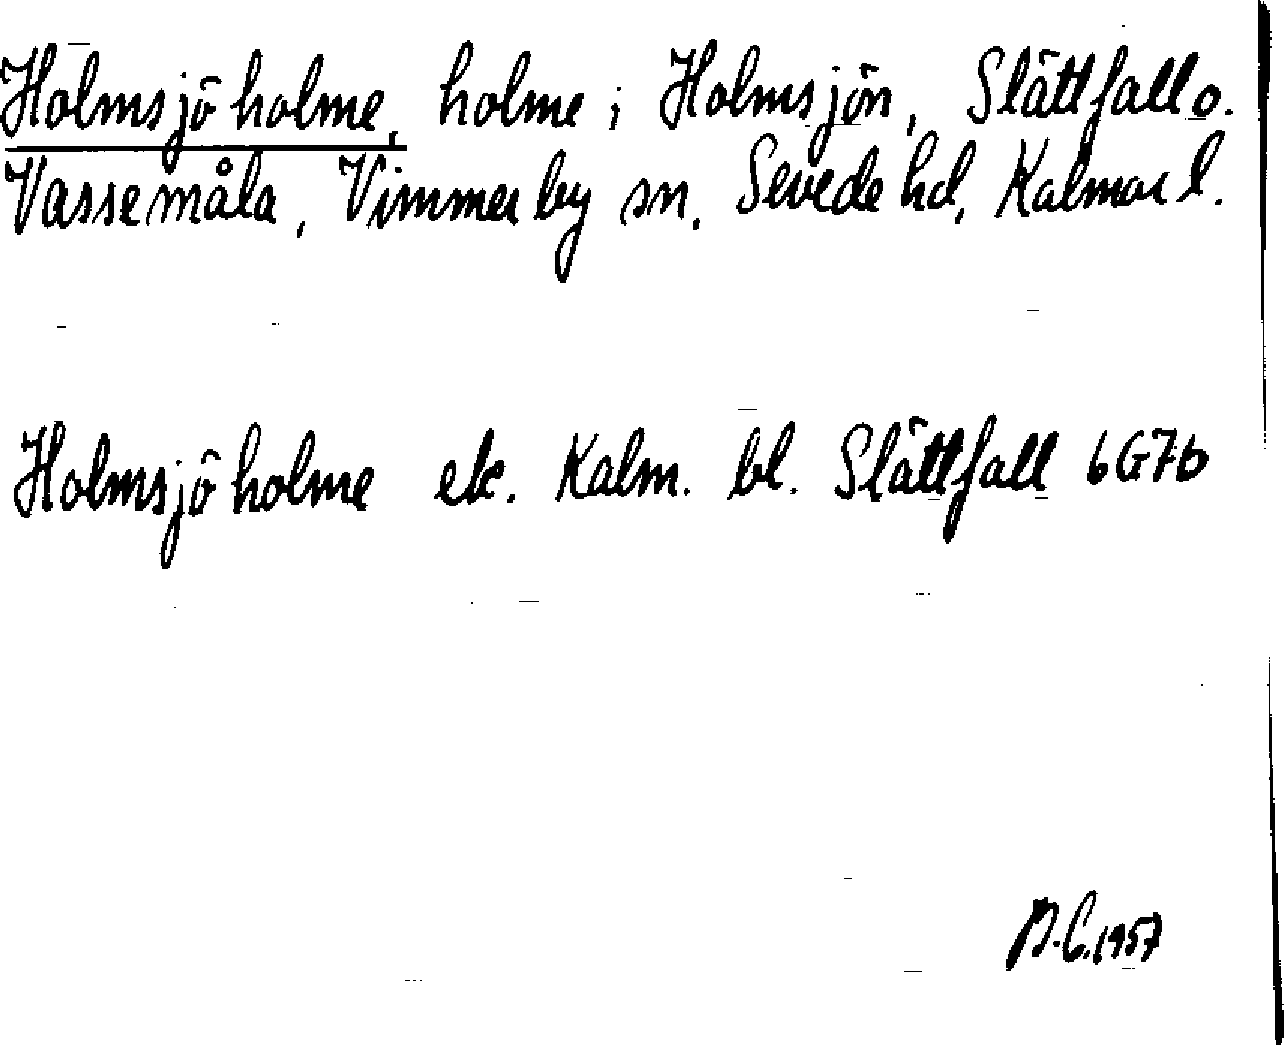 Holmsjöholme, holme i Holmsjön, Slättfall o.
Vassemåla, Vimmerby sn, Sevede hd, Kalmar l.
Holmsjöholme ek. Kalm. bl. Slättfall 6G7b
B.C. 1957